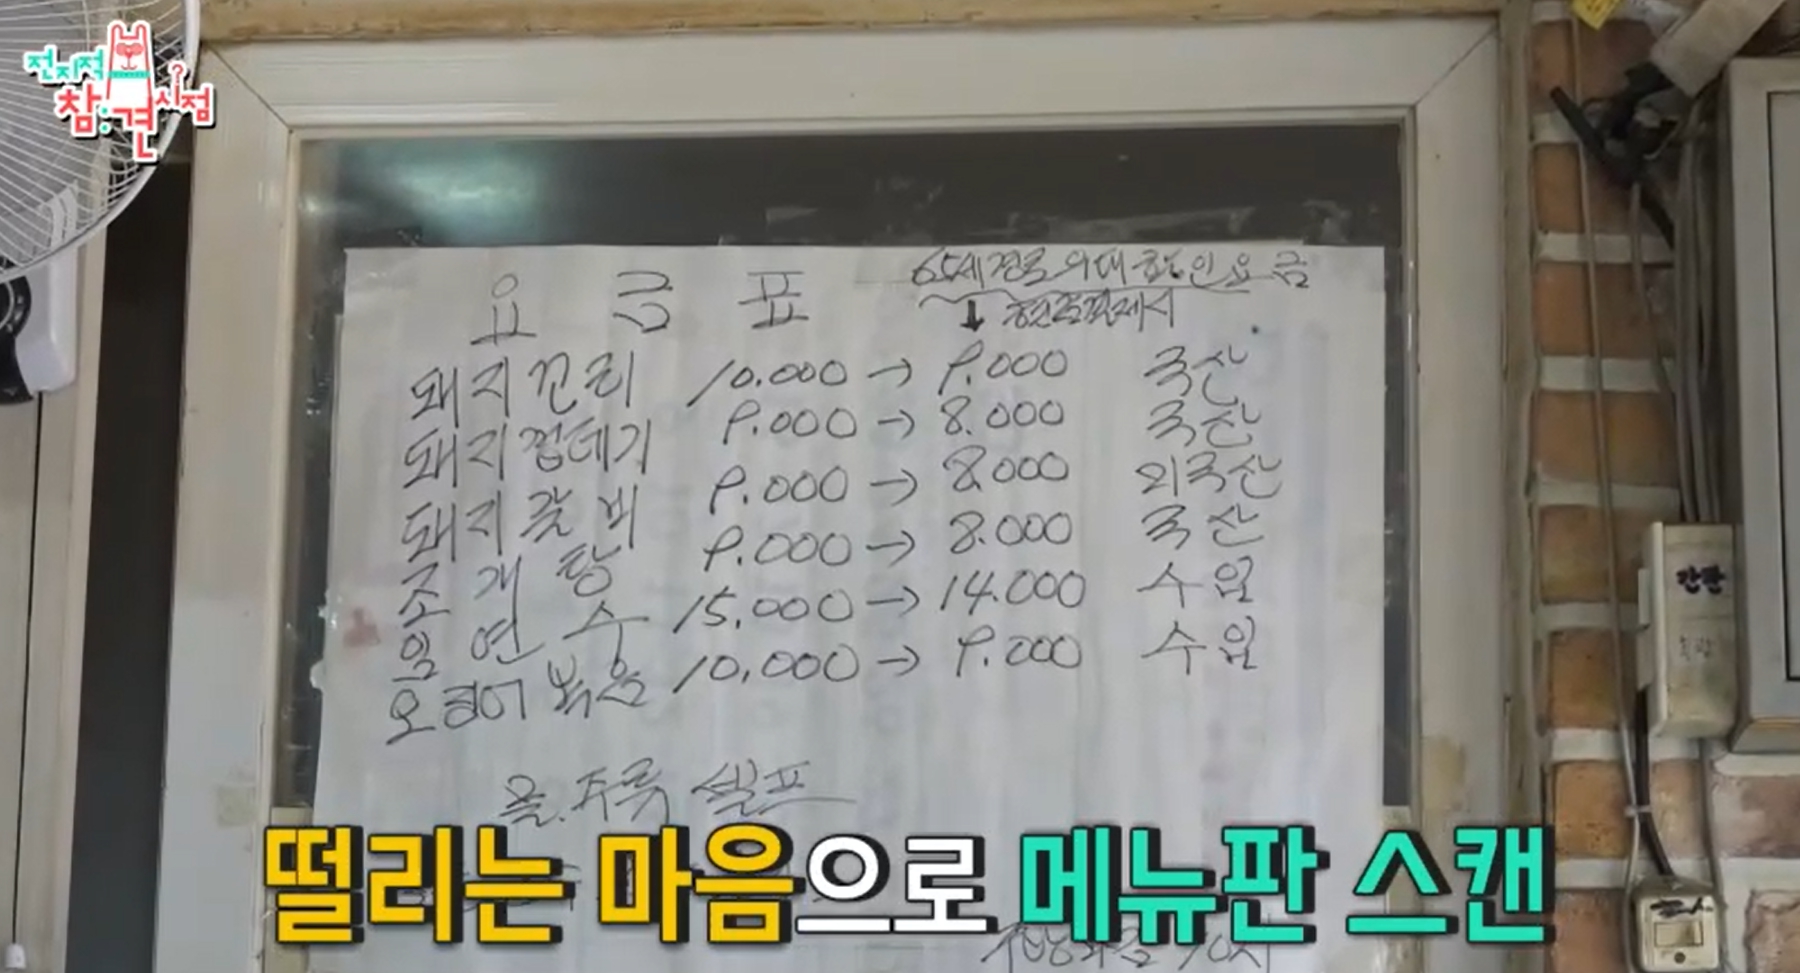 전지적
참견 시점
요금표
65세
돼지꼬리 10.000 → 9.000 국산
돼지껍데기 9.000 → 8.000 국산
돼지갈비 9.000 → 8.000 외국산
조개탕 9.000 → 8.000 국산
임연수 15.000 → 14.000 수입
오징어볶음 10.000 → 9.000 수입
물.주류 셀프
떨리는 마음으로 메뉴판 스캔
간판